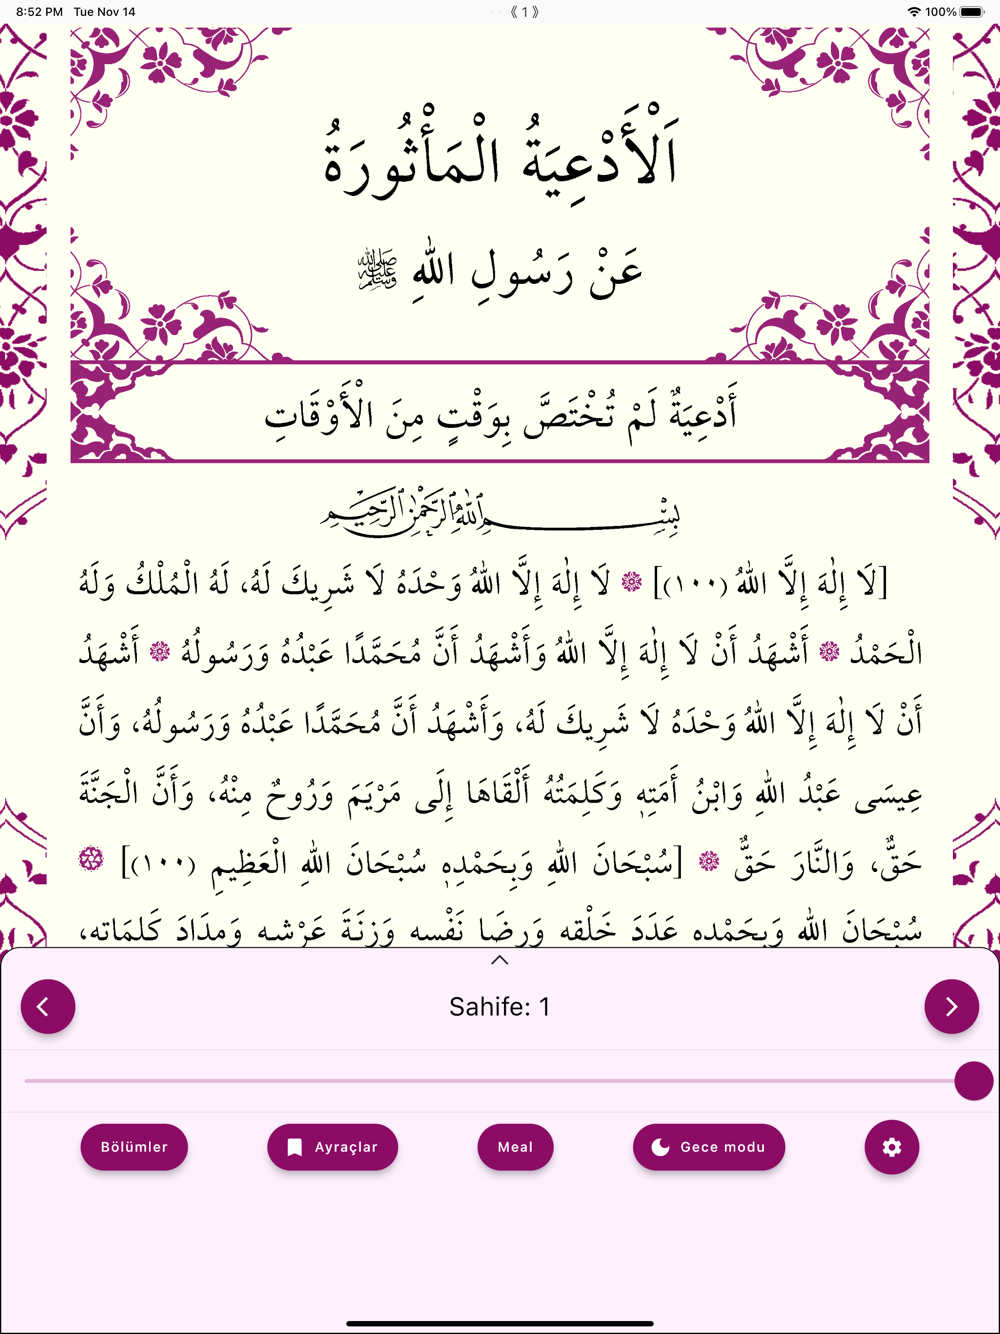 8:52 PM Tue Nov 14
《 1 》
100%
اَلْأَدْعِيَةُ الْمَأْثُورَةُ
عَنْ رَسُولِ اللهِ ﷺ
أَدْعِيَةٌ لَمْ تُخْتَصَّ بِوَقْتٍ مِنَ الْأَوْقَاتِ
بِسْمِ اللهِ الرَّحْمٰنِ الرَّحِيمِ
[لَا إِلٰهَ إِلَّا اللهُ (١٠٠)] لَا إِلٰهَ إِلَّا اللهُ وَحْدَهُ لَا شَرِيكَ لَهُ، لَهُ الْمُلْكُ وَلَهُ
الْحَمْدُ أَشْهَدُ أَنْ لَا إِلٰهَ إِلَّا اللهُ وَأَشْهَدُ أَنَّ مُحَمَّدًا عَبْدُهُ وَرَسُولُهُ أَشْهَدُ
أَنْ لَا إِلٰهَ إِلَّا اللهُ وَحْدَهُ لَا شَرِيكَ لَهُ، وَأَشْهَدُ أَنَّ مُحَمَّدًا عَبْدُهُ وَرَسُولُهُ، وَأَنَّ
عِيسَى عَبْدُ اللهِ وَابْنُ أَمَتِهِ وَكَلِمَتُهُ أَلْقَاهَا إِلَى مَرْيَمَ وَرُوحٌ مِنْهُ، وَأَنَّ الْجَنَّةَ
حَقٌّ، وَالنَّارَ حَقٌّ [سُبْحَانَ اللهِ وَبِحَمْدِهِ سُبْحَانَ اللهِ الْعَظِيمِ (١٠٠)]
سُبْحَانَ اللهِ وَبِحَمْدِهِ عَدَدَ خَلْقِهِ وَرِضَا نَفْسِهِ وَزِنَةَ عَرْشِهِ وَمِدَادَ كَلِمَاتِهِ،
Sahife: 1
Bölümler
Ayraçlar
Meal
Gece modu